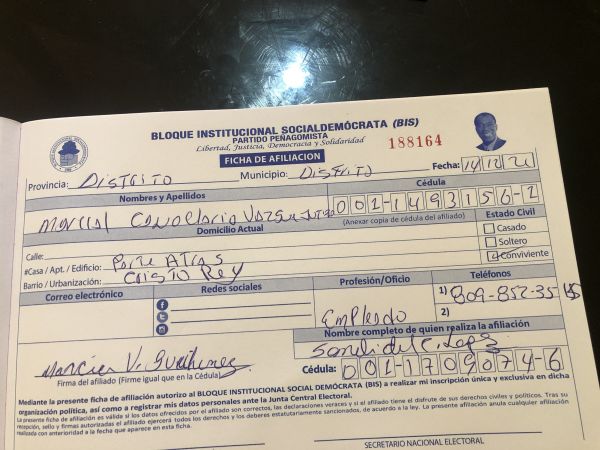 BLOQUE INSTITUCIONAL SOCIALDEMÓCRATA (BIS)
PARTIDO PEÑAGOMISTA
Libertad, Justicia, Democracia y Solidaridad
188164
FICHA DE AFILIACION
Provincia: Distrito Municipio: Distrito Fecha: 14/12/21
Nombres y Apellidos Cédula
Marcial 001-1493156-2
Domicilio Actual (Anexar copia de cédula del afiliado) Estado Civil
Calle: Casado
#Casa / Apt. / Edificio: Parte Atras Soltero
Barrio / Urbanización: Cristo Rey Conviviente
Correo electrónico Redes sociales Profesión/Oficio Teléfonos
1) 809-852-35
Empleado 2)
Nombre completo de quien realiza la afiliación
Firma del afiliado (Firme igual que en la Cédula) Cédula: 001-1709074-6
Mediante la presente ficha de afiliación autorizo al BLOQUE INSTITUCIONAL SOCIAL DEMÓCRATA (BIS) a realizar mi inscripción única y exclusiva en dicha
organización política, así como a registrar mis datos personales ante la Junta Central Electoral.
La presente ficha de afiliación es válida si los datos ofrecidos por el afiliado son correctos, las declaraciones veraces y si el afiliado tiene el disfrute de sus derechos civiles y políticos. Tras su
recepción, sello y firmas autorizadas el afiliado ejercerá todos los derechos y los deberes estatutariamente sancionados, de acuerdo a la ley. La presente afiliación anula cualquier afiliación
realizada con anterioridad a la fecha que aparece en esta ficha.
SECRETARIO NACIONAL ELECTORAL